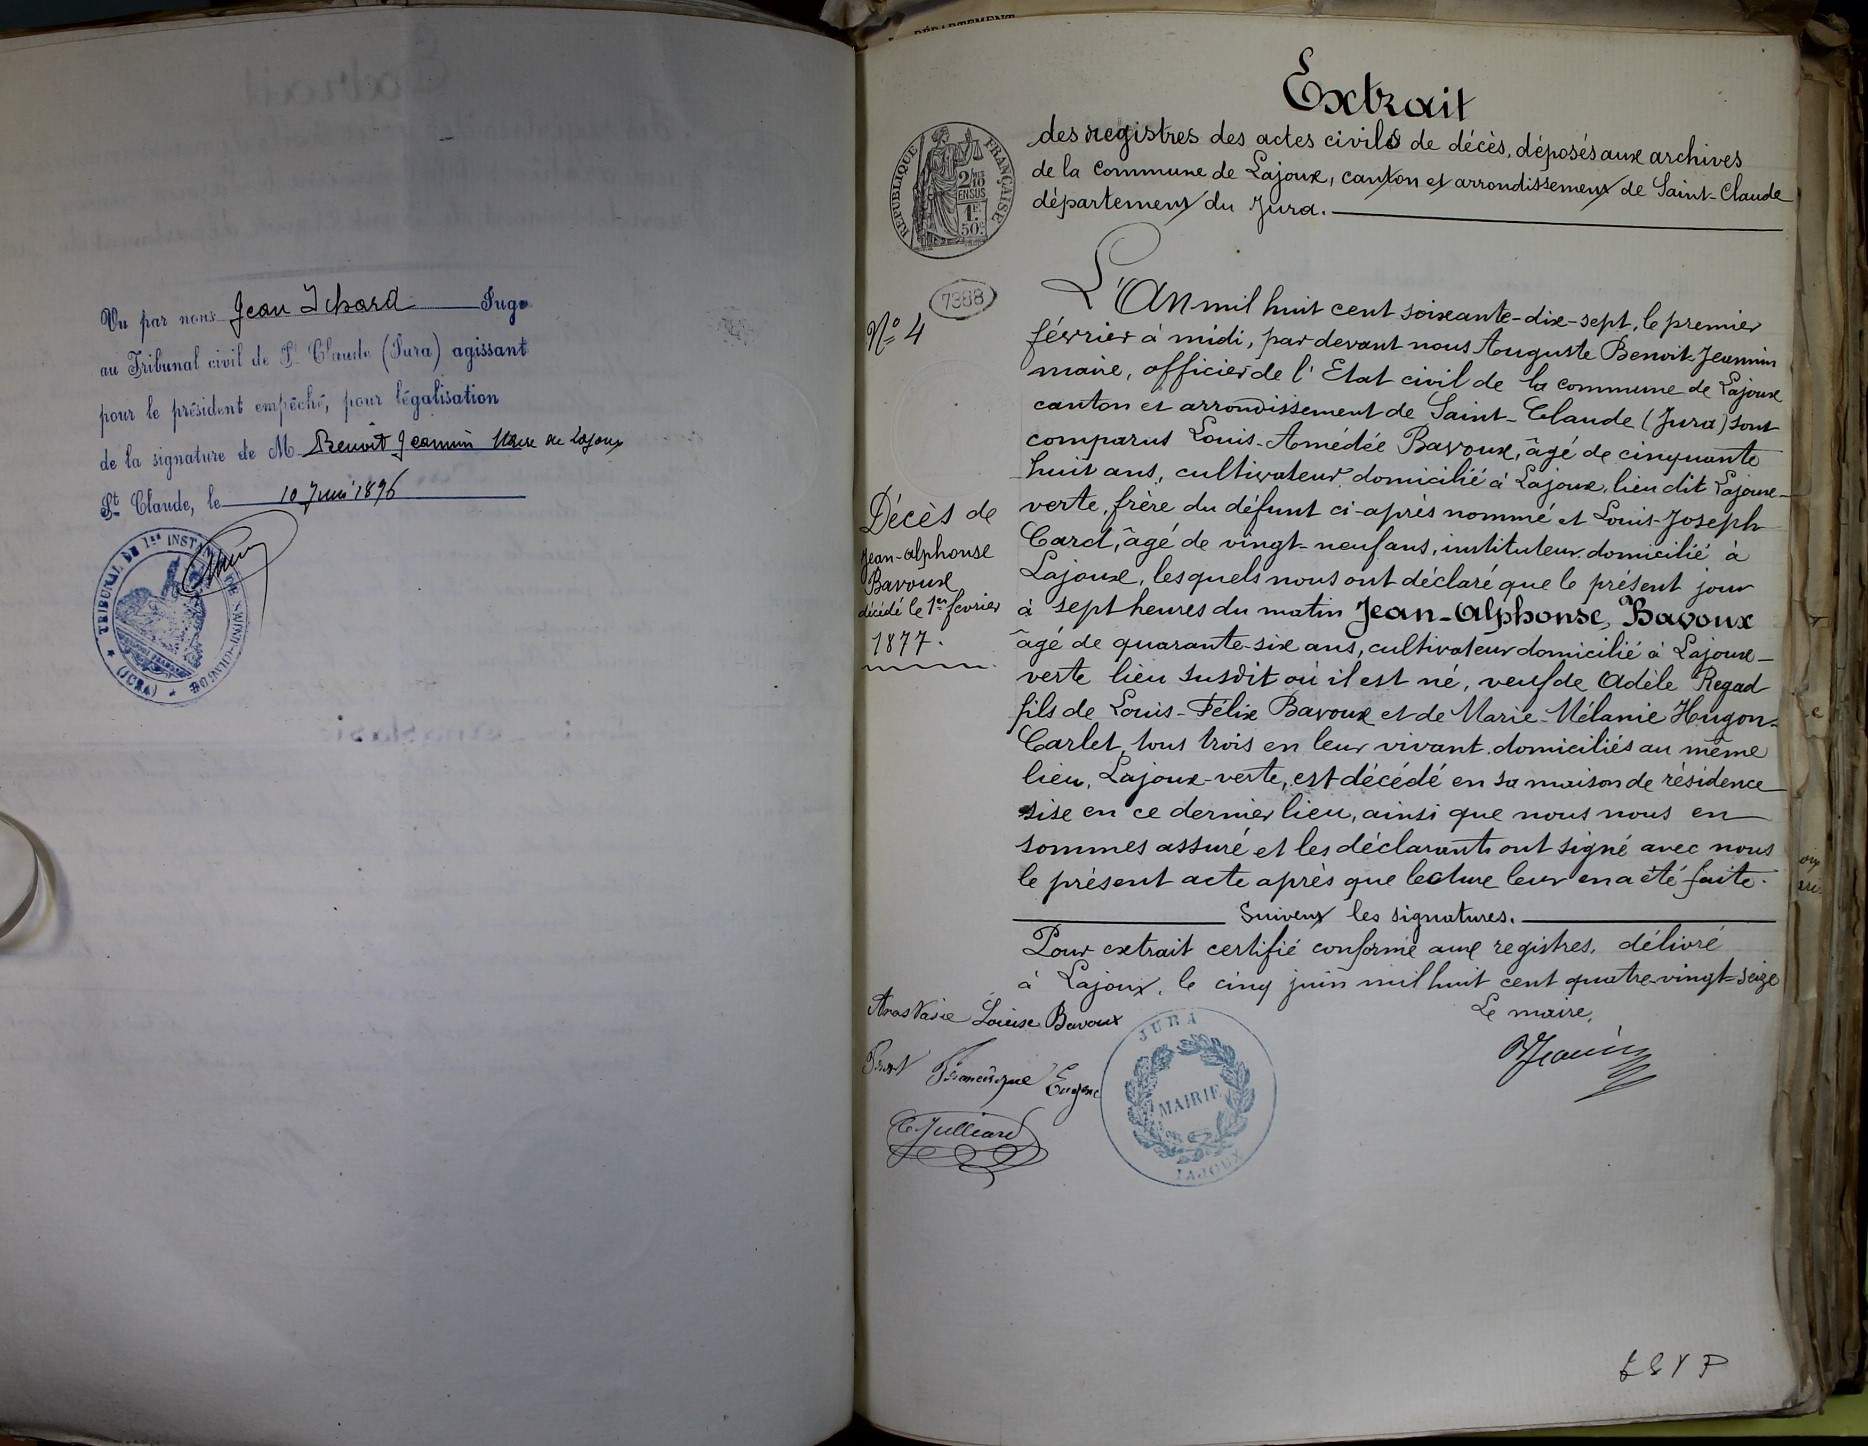 Vu par nous Jean Ichard Juge
au Tribunal civil de St Claude (Jura) agissant
pour le président empêché, pour légalisation
de la signature de M. Benoit Jeannin Maire de Lajoux
St Claude, le 10 Juin 1896
TRIBUNAL DE 1re INSTANCE DE SAINT-CLAUDE
(JURA)
DÉPARTEMENT
Extrait
des registres des actes civils de décès, déposés aux archives
de la commune de Lajoux, canton et arrondissement de Saint-Claude
département du Jura.
RÉPUBLIQUE FRANÇAISE
2/10 EN SUS
1F 50c
7388
N° 4
L'An mil huit cent soixante-dix-sept, le premier
février à midi, par devant nous Auguste Benoit-Jeannin
maire, officier de l'Etat civil de la commune de Lajoux
canton et arrondissement de Saint-Claude (Jura) sont
comparus Louis-Amédée Bavoux, âgé de cinquante
huit ans, cultivateur domicilié à Lajoux, lieu dit Lajoux-
verte, frère du défunt ci-après nommé et Louis-Joseph
Card, âgé de vingt-neuf ans, instituteur domicilié à
Lajoux, lesquels nous ont déclaré que le présent jour
à sept heures du matin Jean-Alphonse Bavoux
âgé de quarante-six ans, cultivateur domicilié à Lajoux-
verte lieu susdit où il est né, veuf de Adèle Regad
fils de Louis-Félix Bavoux et de Marie-Mélanie Hugon-
Carlet, tous trois en leur vivant domiciliés au même
lieu, Lajoux-verte, est décédé en sa maison de résidence
sise en ce dernier lieu, ainsi que nous nous en
sommes assuré et les déclarants ont signé avec nous
le présent acte après que lecture leur en a été faite.
Suivent les signatures.
Pour extrait certifié conforme aux registres, délivré
à Lajoux, le cinq juin mil huit cent quatre-vingt-seize
Le maire,
BJeannin
Décès de
Jean-Alphonse
Bavoux
décédé le 1er février
1877.
Anastasie Louise Bavoux
Francisque Eugene
C. Julliard
JURA
MAIRIE
LAJOUX